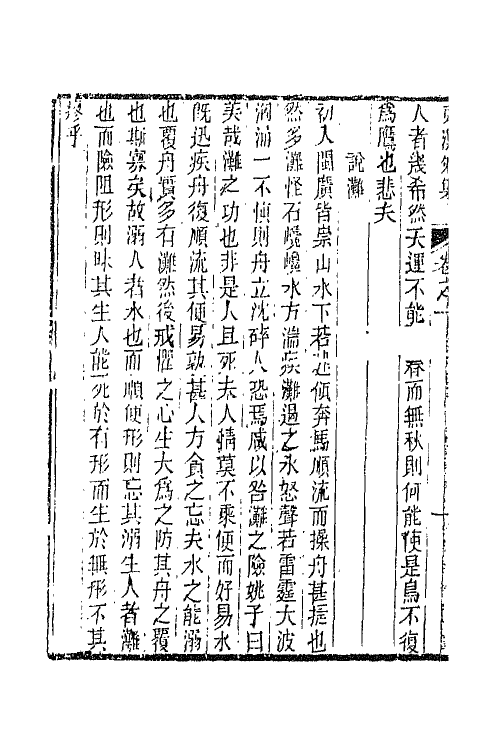 人者幾希然天運不能 春而無秋則何能使是鳥不復
為鷹也悲夫
說灘
初入閩廣皆崇山水下若 傾奔馬順流而操舟甚捷也
然多灘怪石巉巉水方湍疾灘過之水怒聲若雷霆大波
洶湧一不慎則舟立沈碎人恐焉咸以咎灘之險姚子曰
美哉灘之功也非是人且死夫人情莫不乘便而好易水
既迅疾舟復順流其便易孰甚人方貪之忘夫水之能溺
也覆舟實多有灘然後戒懼之心生大為之防其舟之覆
也斯寡矣故溺人者水也而順便形則忘其溺生人者灘
也而險阻形則昧其生人能死於有形而生於無形不其
乎